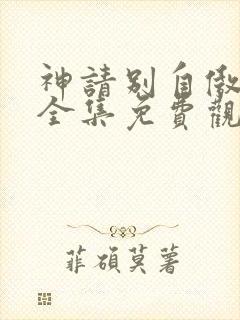 神請別自傲
全集免費觀
菲碩莫著